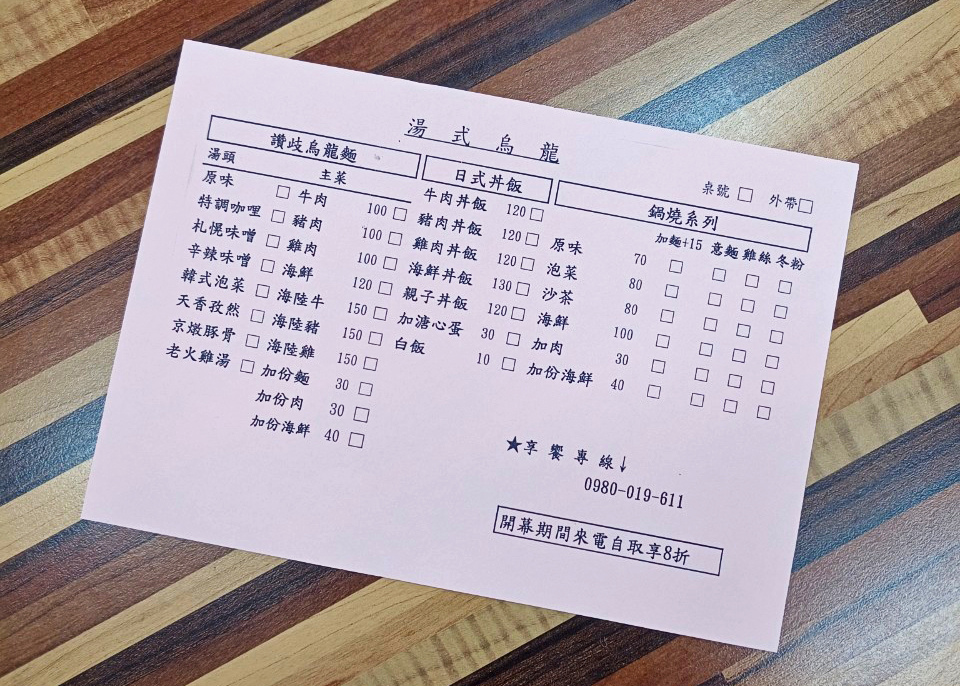 湯式烏龍
桌號 □ 外帶 □
讚歧烏龍麵
湯頭 主菜
原味 □ 牛肉 100 □
特調咖哩 □ 豬肉 100 □
札幌味噌 □ 雞肉 100 □
辛辣味噌 □ 海鮮 120 □
韓式泡菜 □ 海陸牛 150 □
天香孜然 □ 海陸豬 150 □
京燉豚骨 □ 海陸雞 150 □
老火雞湯 □ 加份麵 30 □
加份肉 30 □
加份海鮮 40 □
日式丼飯
牛肉丼飯 120 □
豬肉丼飯 120 □
雞肉丼飯 120 □
海鮮丼飯 130 □
親子丼飯 120 □
加溏心蛋 30 □
白飯 10 □
鍋燒系列
加麵+15 意麵 雞絲 冬粉
原味 70 □ □ □ □
泡菜 80 □ □ □ □
沙茶 80 □ □ □ □
海鮮 100 □ □ □ □
加肉 30 □ □ □ □
加份海鮮 40 □ □ □ □
★享饗專線↓
0980-019-611
開幕期間來電自取享8折